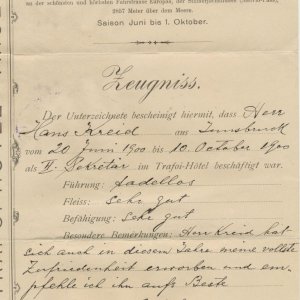 an der schönsten und höchsten Fahrstrasse Europas, der Stilfserjochstrasse
2857 Meter über dem Meere.
Saison Juni bis 1. Oktober.
Zeugniss.
Der Unterzeichnete bescheinigt hiermit, dass Herr
Hans Kreid aus Innsbruck
vom 20 Juni 1900 bis 10. October 1900
als II. Sekretär im Trafoi-Hôtel beschäftigt war.
Führung: tadellos
Fleiss: sehr gut
Befähigung: sehr gut
Besondere Bemerkungen: Herr Kreid hat
sich auch in diesem Jahre meine vollste
Zufriedenheit erworben und em-
pfehle ich ihn aufs Beste